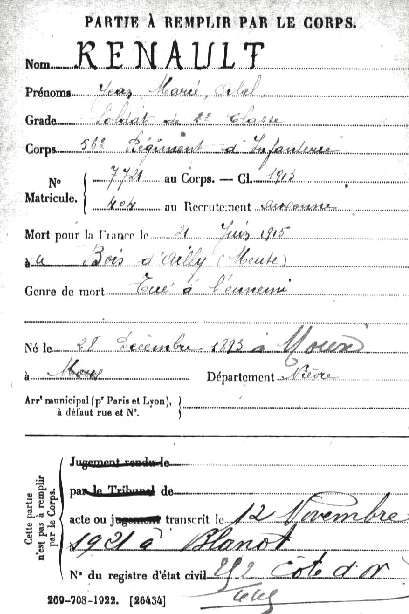 PARTIE À REMPLIR PAR LE CORPS.
Nom RENAULT
Prénoms Jean Marie
Grade Soldat de 2e Classe
Corps 56e Régiment d'Infanterie
N° Matricule. 7721 au Corps. — Cl. 1913
404 au Recrutement Auxonne
Mort pour la France le 21 Juin 1915
à Bois d'Ailly (Meuse)
Genre de mort Tué à l'ennemi
Né le 28 Décembre 1893 à Moux
à Département Nièvre
Arrt municipal (pr Paris et Lyon),
à défaut rue et N°.
Cette partie n'est pas à remplir par le Corps.
Jugement rendu le
par le Tribunal de
acte ou jugement transcrit le 12 Novembre
1921 à Blanot
N° du registre d'état civil Côte d'or
269-708-1922. [26434]